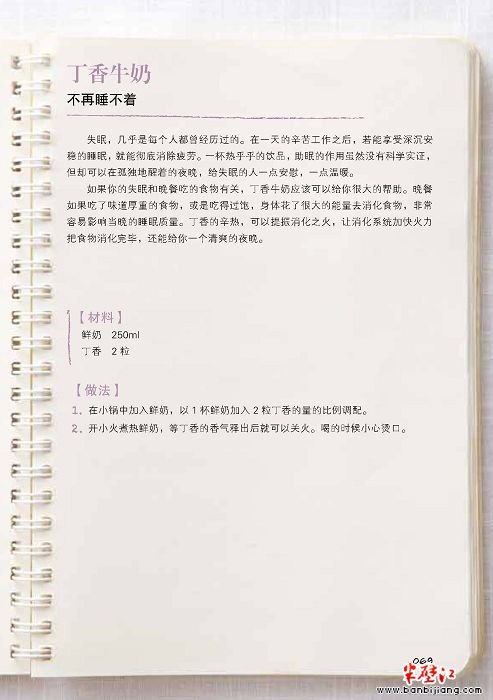 丁香牛奶
不再睡不着
失眠，几乎是每个人都曾经历过的。在一天的辛苦工作之后，若能享受深沉安
稳的睡眠，就能彻底消除疲劳。一杯热乎乎的饮品，助眠的作用虽然没有科学实证，
但却可以在孤独地醒着的夜晚，给失眠的人一点安慰，一点温暖。
如果你的失眠和晚餐吃的食物有关，丁香牛奶应该可以给你很大的帮助。晚餐
如果吃了味道厚重的食物，或是吃得过饱，身体花了很大的能量去消化食物，非常
容易影响当晚的睡眠质量。丁香的辛热，可以提振消化之火，让消化系统加快火力
把食物消化完毕，还能给你一个清爽的夜晚。
【材料】
鲜奶 250ml
丁香 2 粒
【做法】
1. 在小锅中加入鲜奶，以 1 杯鲜奶加入 2 粒丁香的量的比例调配。
2. 开小火煮热鲜奶，等丁香的香气释出后就可以关火。喝的时候小心烫口。
069
半壁江
www.banbijiang.com